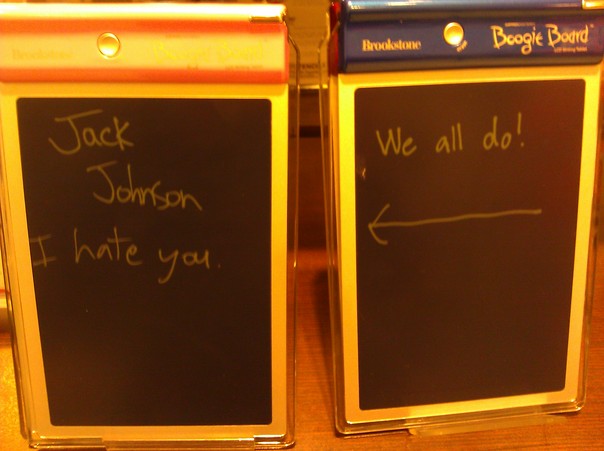 Brookstone
Jack
Johnson
I hate you.
Brookstone
Boogie Board
We all do!